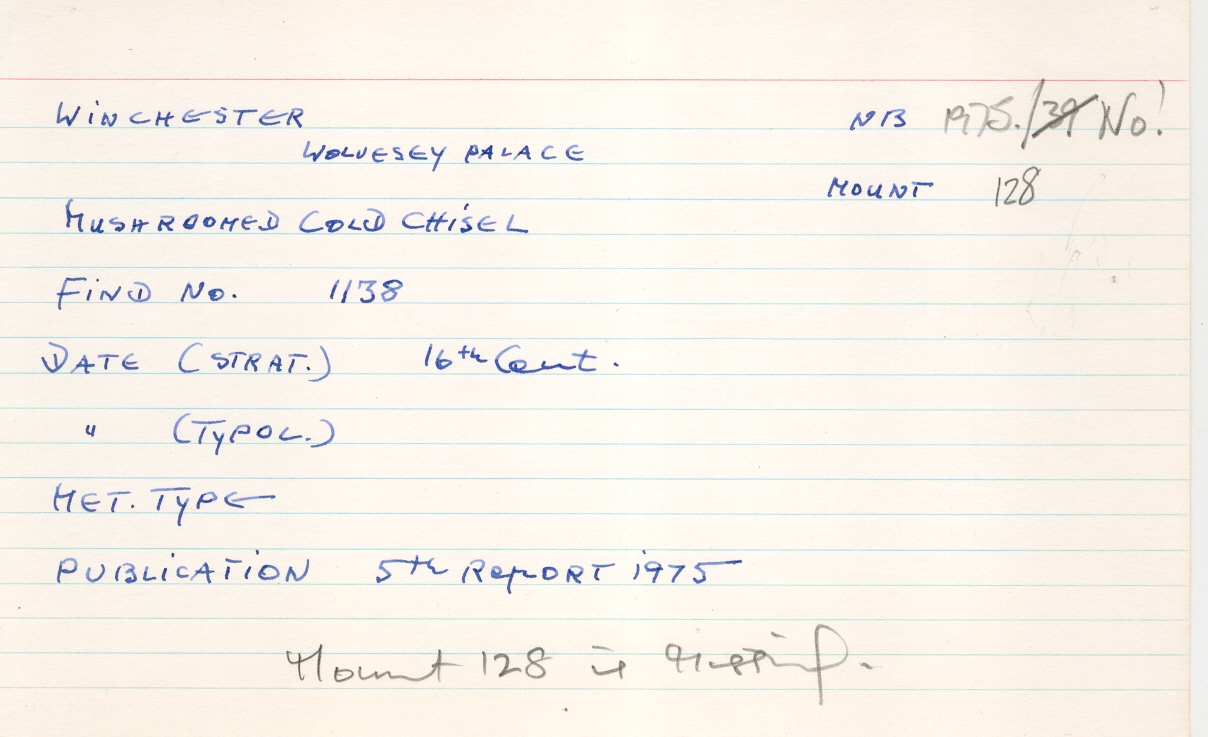 WINCHESTER NB 1975./39 No!
WOLVESEY PALACE
MOUNT 128
MUSHROOMED COLD CHISEL
FIND No. 1138
DATE (STRAT.) 16th Cent.
" (TYPOL.)
MET. TYPE
PUBLICATION 5th REPORT 1975
Mount 128 is missing.